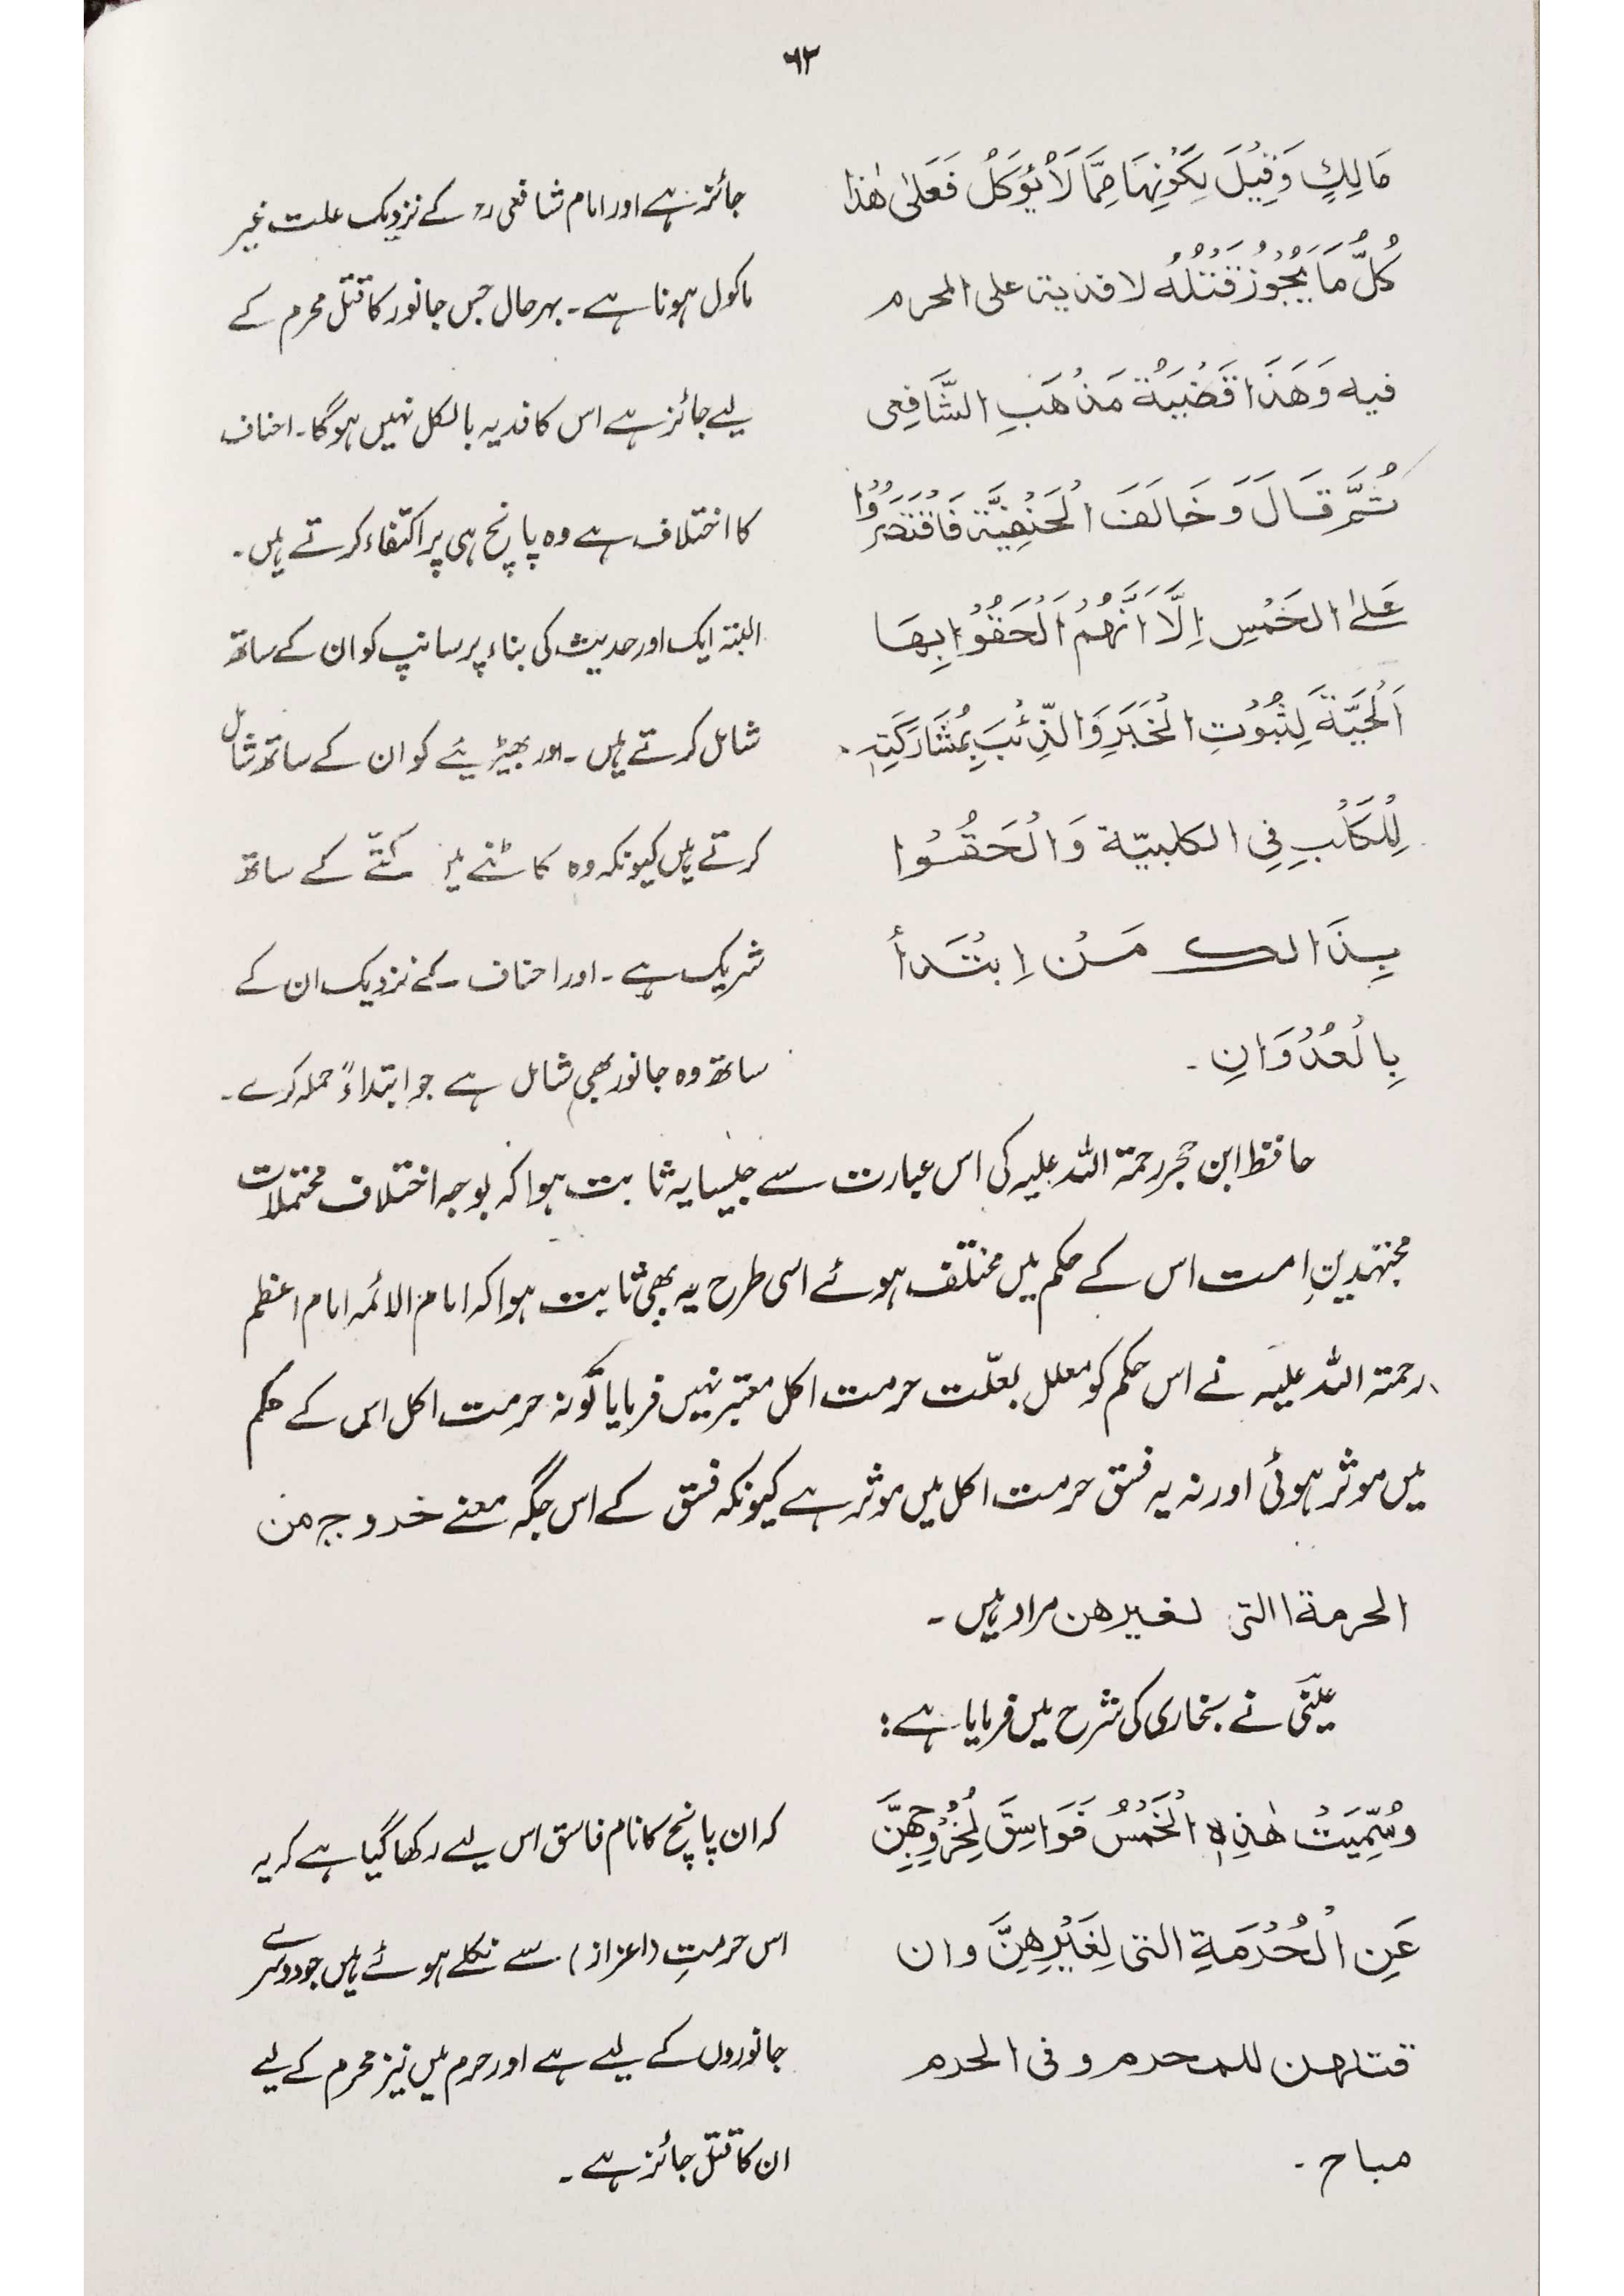 ۶۲
مَالِكٍ وَقِيْلَ بِكَوْنِهَا مِمَّا لَا يُوكَلُ فَعَلىٰ هٰذا
كُلُّ مَا يَجُوْزُ قَتْلُهُ لا فدية على المحرم
فيه وَهَذَا قَضِيَةُ مَذْهَبِ الشَّافِعِى
ثُمَّ قَالَ وَخَالَفَ الْحَنِفِيَّة فَاقْتَصَرُوْا
عَلىٰ الخَمْسِ اِلَّا اَنَّهُمْ اَلْحَقُوْا بِهَا
اَلْحَيَّةَ لِثُبُوْتِ الْخَبَرِ وَالذِّئْبَ بِمُشَارَكَتِهٖ
لِلْكَلْبِ فِى الكلبيّة وَالْحَقُوْا
بِذَالك مَنْ اِبْتَدَأ
بِالْعُدْوَانِ ۔
جائز ہے اور امام شافعی رح کے نزدیک علت غیر
ماکول ہونا ہے ۔ بہرحال جس جانور کا قتل محرم کے
لیے جائز ہے اس کا فدیہ بالکل نہیں ہوگا۔ احناف
کا اختلاف ہے وہ پانچ ہی پر اکتفاء کرتے ہیں ۔
البتہ ایک اور حدیث کی بناء پر سانپ کو ان کے ساتھ
شامل کرتے ہیں ۔ اور بھیڑیئے کو ان کے ساتھ شامل
کرتے ہیں کیونکہ وہ کاٹنے میں کتّے کے ساتھ
شریک ہے ۔ اور احناف کے نزدیک ان کے
ساتھ وہ جانور بھی شامل ہے جو ابتداءً حملہ کرے ۔
حافظ ابن حجر رحمۃ اللہ علیہ کی اس عبارت سے جیسا یہ ثابت ہوا کہ بوجہ اختلاف محتملات
مجتہدینِ امت اس کے حکم میں مختلف ہوئے اسی طرح یہ بھی ثابت ہوا کہ امام الائمہ امام اعظم
رحمتہ اللہ علیہ نے اس حکم کو معلل بعلّت حرمت اکل معتبر نہیں فرمایا تو نہ حرمت اکل اس کے حکم
میں موثر ہوئی اور نہ یہ فسق حرمت اکل میں موثر ہے کیونکہ فسق کے اس جگہ معنے خروج من
الحرمة التى لغيرهن مراد ہیں ۔
عینی نے بخاری کی شرح میں فرمایا ہے :
وسُمِّيَتْ هٰذِهِ الْخَمْسُ فَوَاسِقَ لِخُرُوْجِهِنَّ
عَنِ الْحُرْمَةِ التى لِغَيْرِهِنَّ وان
قتلهن للمحرم و فى الحرم
مباح ۔
کہ ان پانچ کا نام فاسق اس لیے رکھا گیا ہے کہ یہ
اس حرمتِ (اعزاز) سے نکلے ہوئے ہیں جو دوسرے
جانوروں کے لیے ہے اور حرم میں نیز محرم کے لیے
ان کا قتل جائز ہے ۔